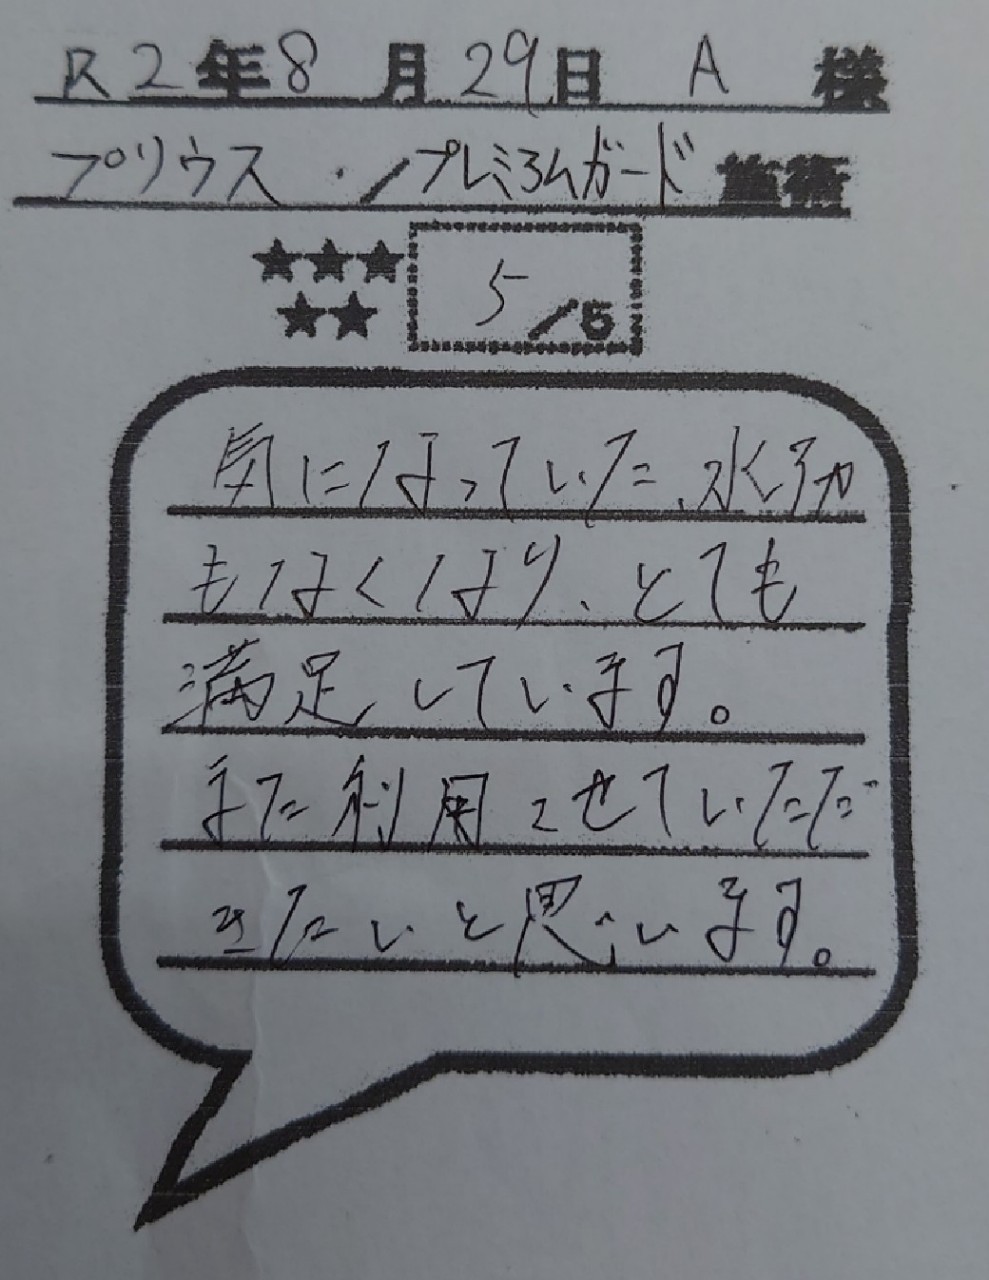 R2年8月29日 A 様
プリウス ・／プレミアムガード 施術
★★★
★★
5／5
気になっていた、水アカ
もなくなり、とても
満足しています。
また利用させていただ
きたいと思います。